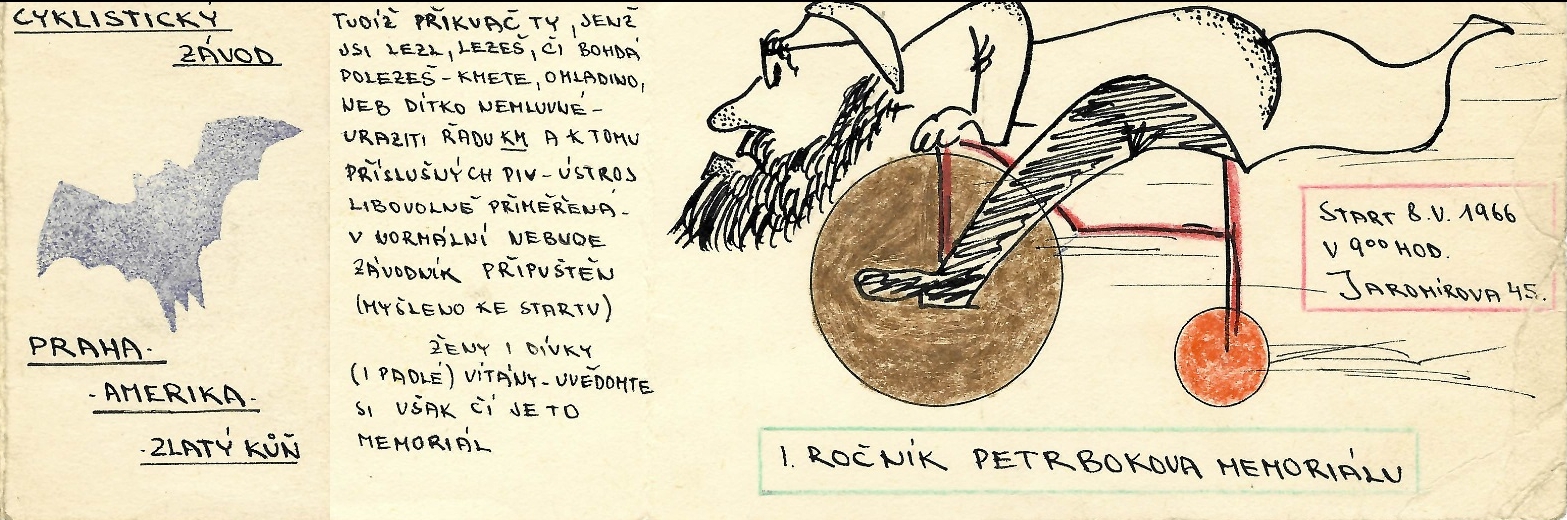 CYKLISTICKÝ
ZÁVOD
PRAHA-
-AMERIKA-
-ZLATÝ KŮŇ
TUDÍŽ PŘIKVAČ TY, JENŽ
JSI LEZL, LEZEŠ, ČI BOHDÁ
POLEZEŠ - KMETE, OMLADINO,
NEB DÍTKO NEMLUVNÉ -
URAZITI ŘADU KM A K TOMU
PŘÍSLUŠNÝCH PIV - ÚSTROJ
LIBOVOLNĚ PŘIMĚŘENÁ -
V NORMÁLNÍ NEBUDE
ZÁVODNÍK PŘIPUŠTĚN
(MYŠLENO KE STARTU)
ŽENY I DÍVKY
(I PADLÉ) VÍTÁNY - UVĚDOMTE
SI VŠAK ČÍ JE TO
MEMORIÁL
START 8. V. 1966
V 9⁰⁰ HOD.
JAROMÍROVA 45.
1. ROČNÍK PETRBOKOVA MEMORIÁLU